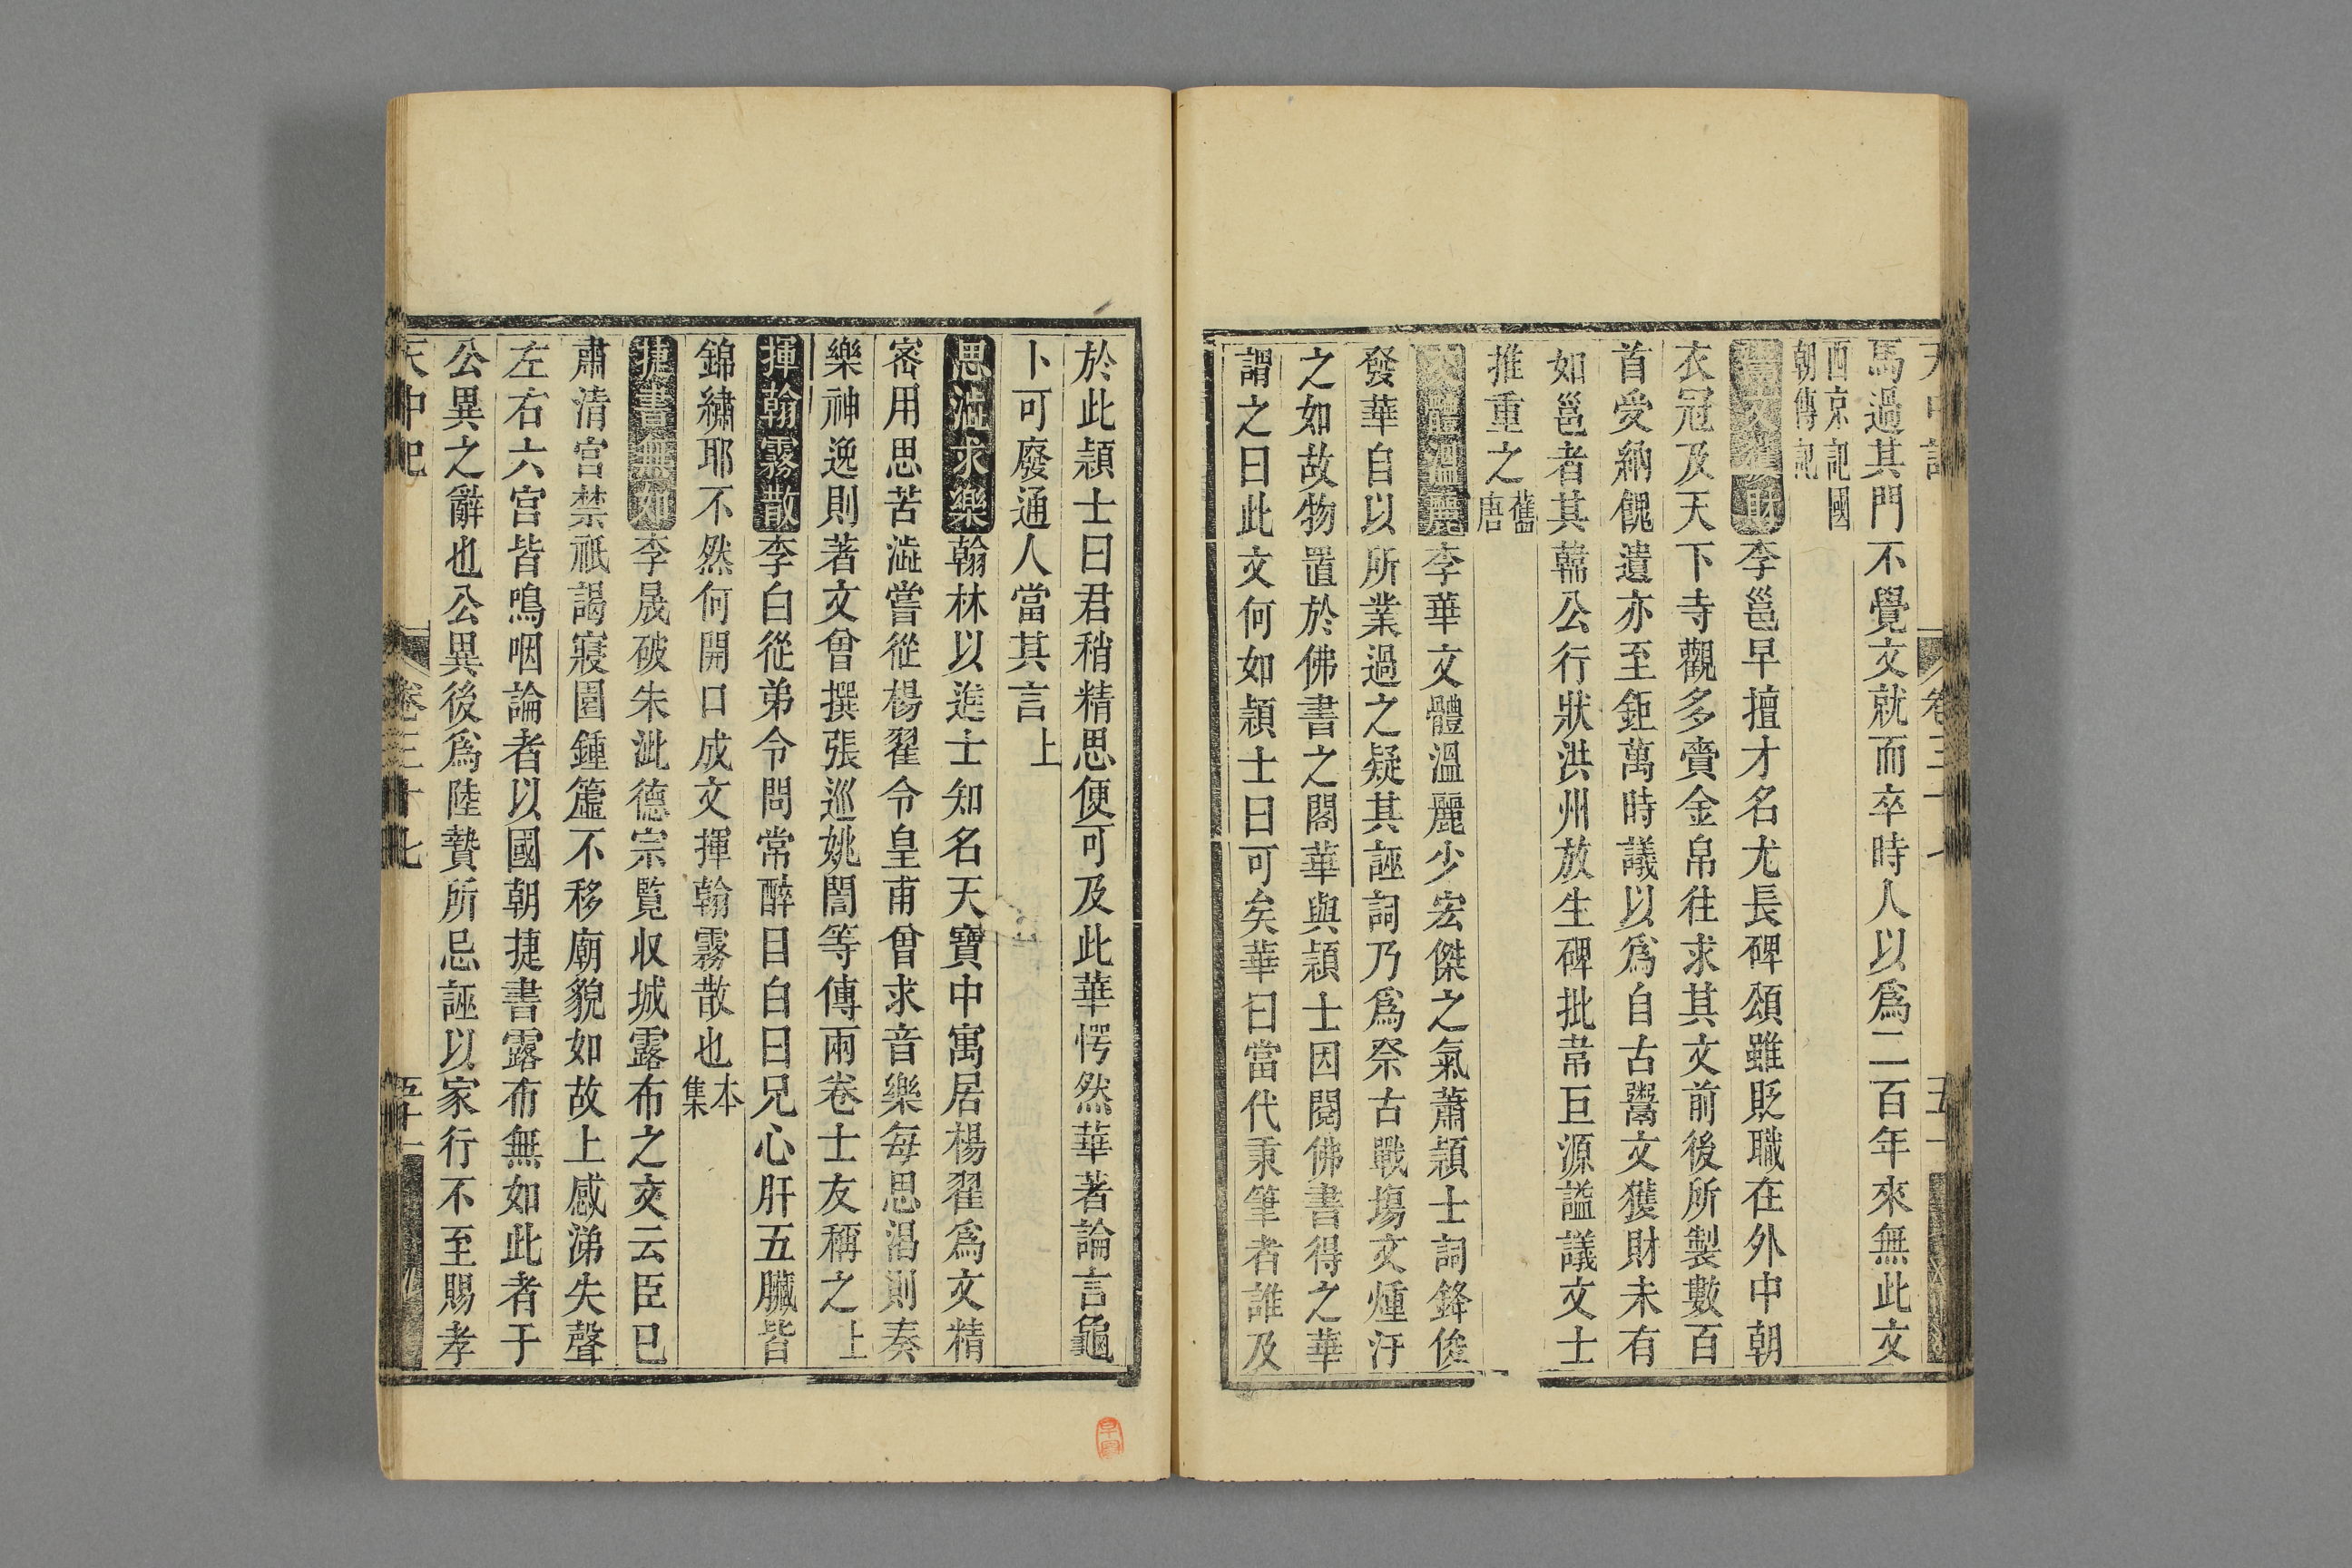 馬過其門不覺文就而卒時人以爲二百年來無此文
西京記國
朝傳記
鬻文獲財李邕早擅才名尤長碑頌雖貶職在外中朝
衣冠及天下寺觀多賫金帛往求其文前後所製數百
首受納餽遺亦至鉅萬時議以爲自古鬻文獲財未有
如邕者其韓公行狀洪州放生碑批韋巨源謚議文士
推重之舊唐
文體溫麗李華文體溫麗少宏傑之氣蕭頴士詞鋒俊
發華自以所業過之疑其誣詞乃爲祭古戰塲文煄汙
之如故物置於佛書之閣華與頴士因閱佛書得之華
謂之曰此文何如頴士曰可矣華曰當代秉筆者誰及
於此頴士曰君稍精思便可及此華愕然華著論言龜
卜可廢通人當其言上
思澁求樂翰林以進士知名天寶中寓居楊翟爲文精
宻用思苦澁嘗從楊翟令皇甫曾求音樂每思涸則奏
樂神逸則著文曾撰張巡姚誾等傳兩卷士友稱之上
揮翰霧散李白從弟令問常醉目白曰兄心肝五臟皆
錦繡耶不然何開口成文揮翰霧散也本集
捷書無如李晟破朱泚德宗覧収城露布之文云臣已
肅清宫禁祇謁寢園鍾簴不移廟貌如故上感涕失聲
左右六宫皆嗚咽論者以國朝捷書露布無如此者于
公異之辭也公異後爲陸贄所忌誣以家行不至賜孝
天中記 卷三十七 五十一